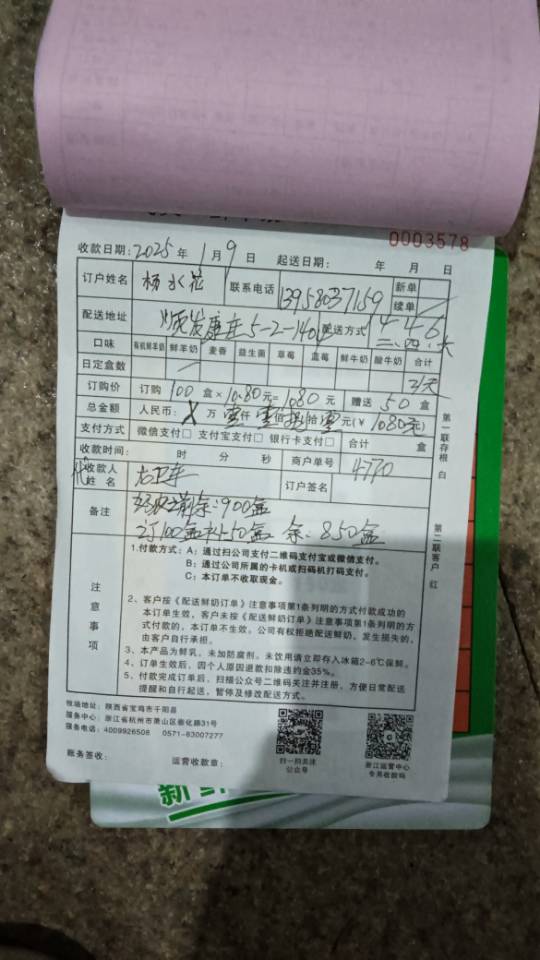 0003578
收款日期:2025 年 1 月 9 日 起送日期: 年 月 日
订户姓名 杨水花 联系电话 13958037159 新单
续单
配送地址 康庄5-2-1401 配送方式 4 4 6
二、四、六
口味 有机鲜羊奶 鲜羊奶 麦香 益生菌 草莓 蓝莓 鲜牛奶 酸牛奶 合计
日定盒数 2/天
订购价 订购 100 盒×10.80元=1080 元 赠送 50 盒
总金额 人民币: 万 仟 佰 拾 元(¥ 1080元)
支付方式 微信支付□ 支付宝支付□ 银行卡支付□ 合计 盒
收款时间: 时 分 秒 商户单号 4770
代收款人
姓名 订户签名
备注 余:900盒
订100盒补50盒 余:850盒
注意事项
1.付款方式:A:通过扫公司支付二维码支付宝或微信支付。
B:通过公司所属的卡机或扫码机打码支付。
C:本订单不收取现金。
2、客户按《配送鲜奶订单》注意事项第1条列明的方式付款成功的
本订单生效,客户未按《配送鲜奶订单》注意事项第1条列明的方
式付款的,本订单不生效。公司有权拒绝配送鲜奶,发生损失的,
由客户自行承担。
3、本产品为鲜乳,未加防腐剂。未饮用请立即存入冰箱2-6℃保鲜。
4、订单生效后,因个人原因退款扣除违约金35%。
5、付款完成订单后,扫描公众号二维码关注并注册,方便日常配送
提醒和自行起送,暂停及修改配送方式。
第一联存根 白
第二联客户 红
牧场地址:陕西省宝鸡市千阳县
服务中心:浙江省杭州市萧山区崇化路31号
服务电话:4009926508 0571-83007277
扫一扫关注
公众号
浙江运营中心
专用收款码
账务签收: 运营收款章:
新鲜